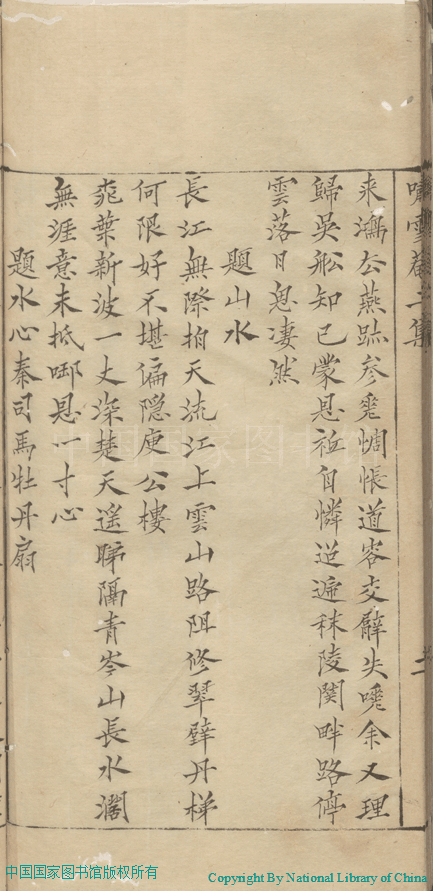 來瀉公燕跡參飛惆悵道客交辭失喚余又理
歸吳舩知已蒙恩祗自憐迢遞秣陵関畔路停
雲落日思凄然
題山水
長江無際拍天流江上雲山路阻修翠壁丹梯
何限好不堪偏隠庾公樓
飛葉新波一丈深楚天遥睇隔青岑山長水濶
無涯意未抵啣恩一寸心
題水心秦司馬牡丹扇
中国国家图书馆
中国国家图书馆版权所有
Copyright By National Library of China